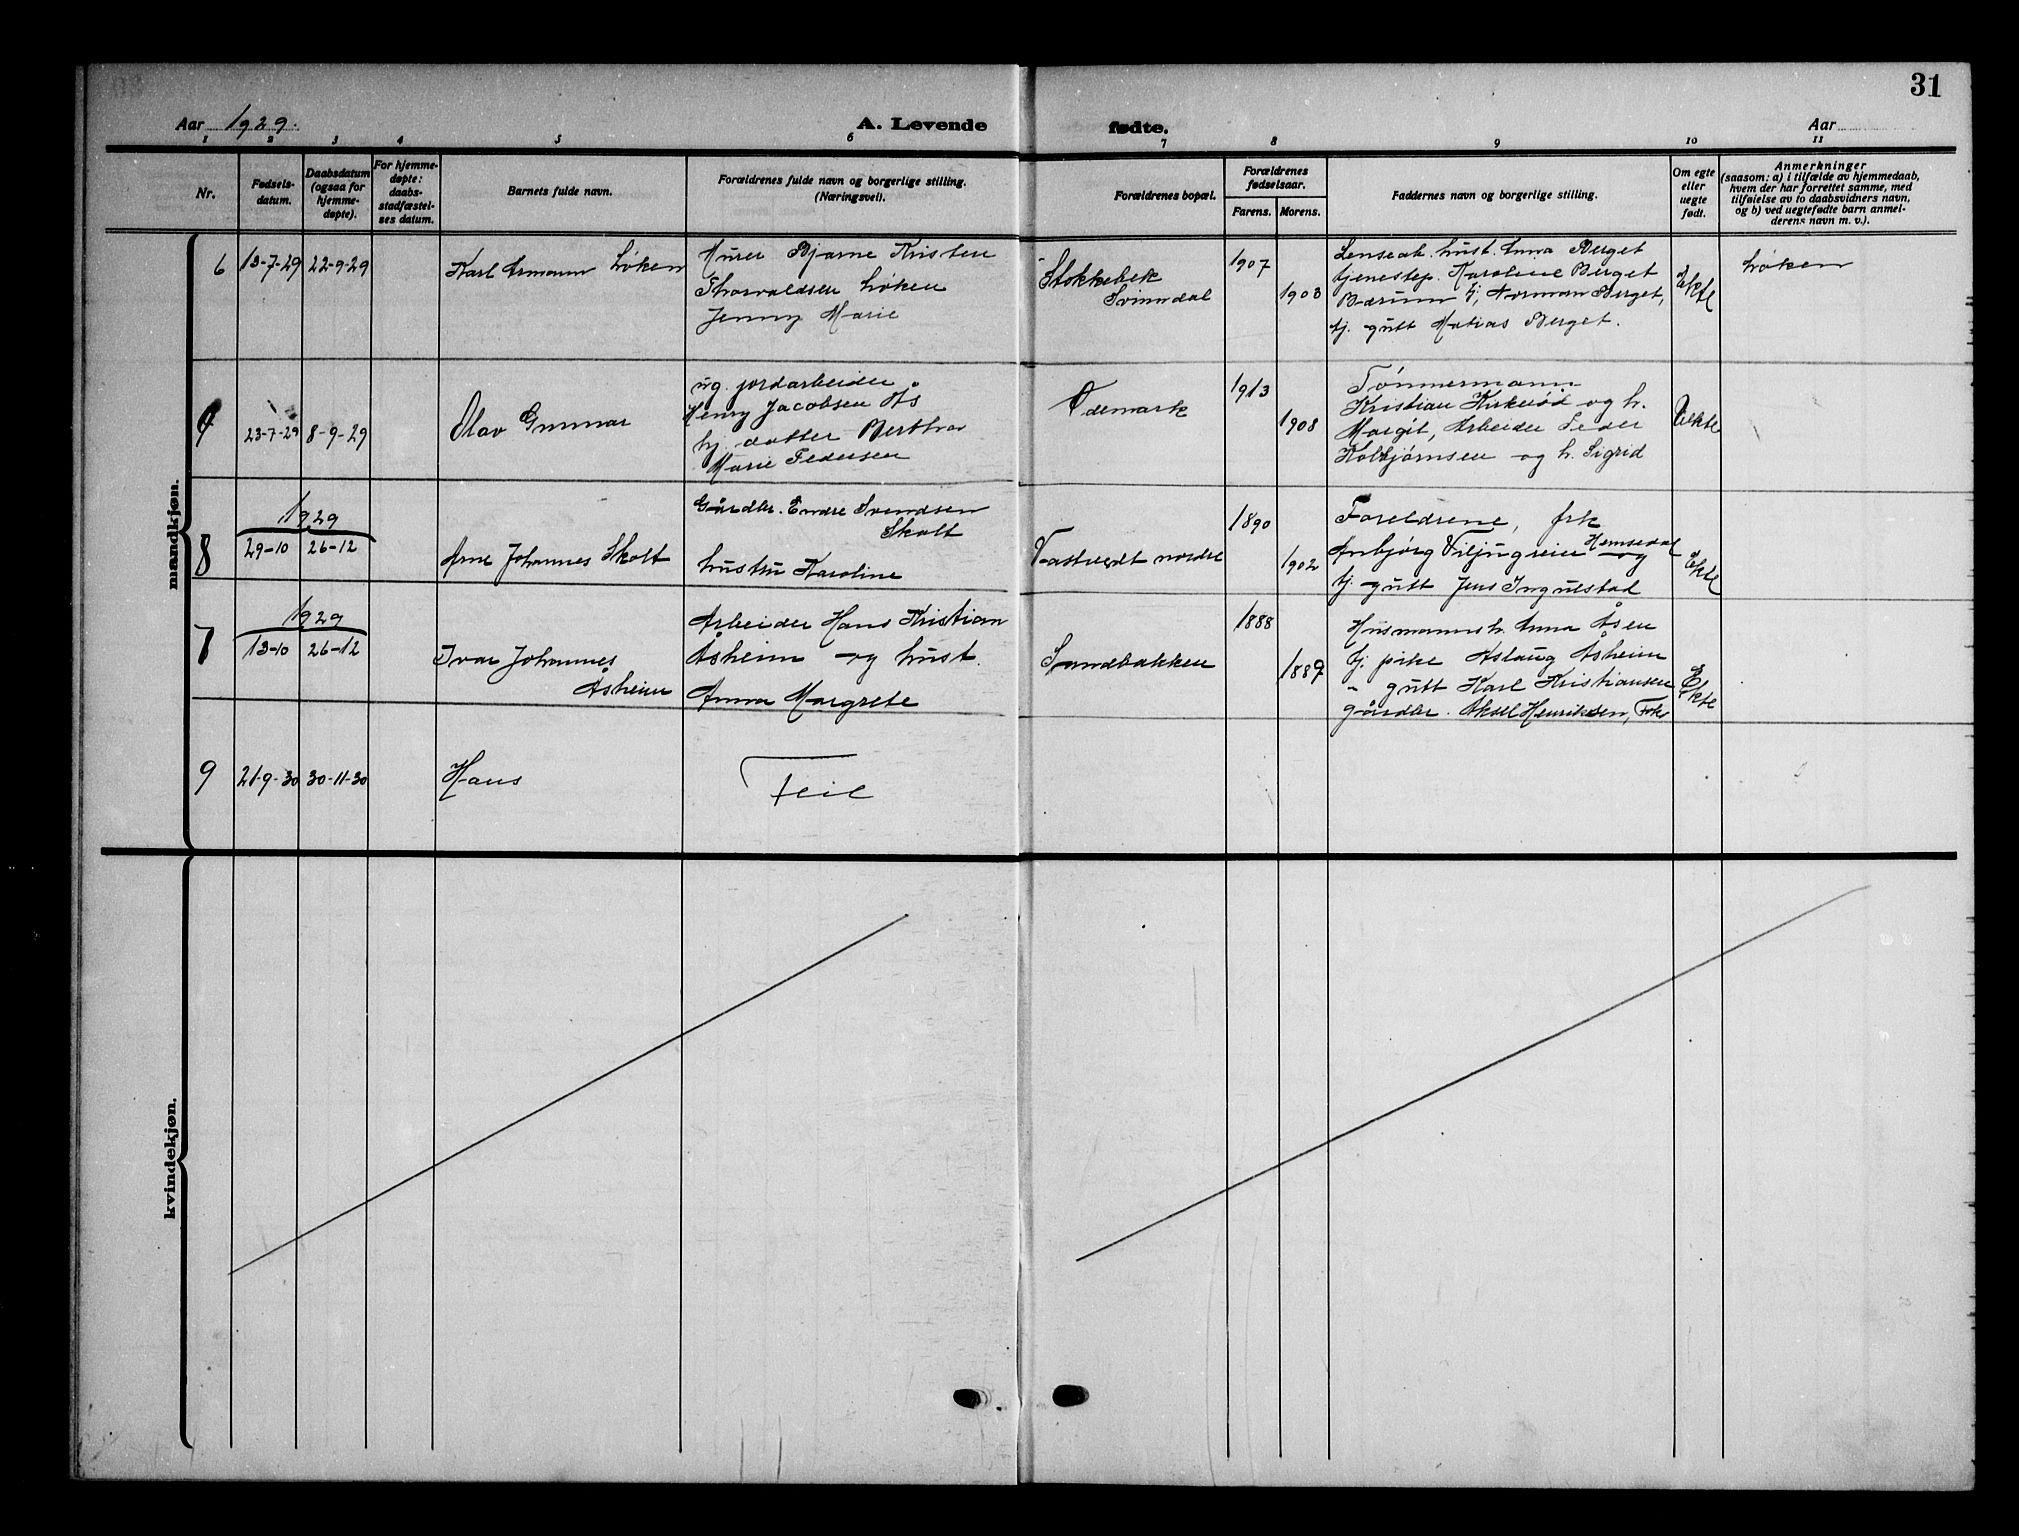 31
Aar 1929.
A. Levende
fødte.
Aar
1 2 3 4 5 6 7 8 9 10 11
Nr.
Fødsels-
datum.
Daabsdatum
(ogsaa for
hjemme-
døpte).
For hjemme-
døpte:
daabs-
stadfæstel-
ses datum.
Barnets fulde navn.
Forældrenes fulde navn og borgerlige stilling.
(Næringsvei).
Forældrenes bopæl.
Forældrenes
fødselsaar.
Farens. Morens.
Faddernes navn og borgerlige stilling.
Om egte
eller
uegte
født.
Anmerkninger
(saasom: a) i tilfælde av hjemmedaab,
hvem der har forrettet samme, med
tilføielse av to daabsvidners navn,
og b) ved uegtefødte barn anmel-
derens navn m. v.).
mandkjøn.
6
13-7-29
22-9-29
Karl Armann Løken
Murer Bjarne Kristen
Thorvaldsen Løken
Jenny Marie
Stokkebek
Svinndal
1907
1903
hust. Anna Berget
tjenestep. Karoline Berget
Bærum tj. Norman Berget,
tj. gutt Matias Berget.
Ekte
Løken
23-7-29
8-9-29
Olav Gunnar
ug. jordarbeider
Henry Jacobsen Ås
hj. datter Berthea
Marie Pedersen
Ødemark
1913
1908
Tømmermann
Kristian Kirkerød og h.
Margit, Arbeider Peder
Kolbjørnsen og h. Sigrid
Uekte
8
1929
29-10
26-12
Arne Johannes Skolt
Gårdbr. Endre Svendsen
Skolt
hustru Karoline
Vastvedt nordre
1890
1902
Foreldrene, frk
Anbjørg Hemsedal og
tj. gutt Jens Ingulstad
Ekte
7
1929
13-10
26-12
Ivar Johannes
Åsheim
Arbeider Hans Kristian
Åsheim og hust.
Anna Margrete
Sandbakken
1888
1889
Husmannsh. Anna Åsen
tj. pike Aslaug Åsheim
" gutt Karl Kristiansen
gårdbr. Aksel Henriksen,
Ekte
9
21-9-30
30-11-30
Hans
Feil
kvindekjøn.